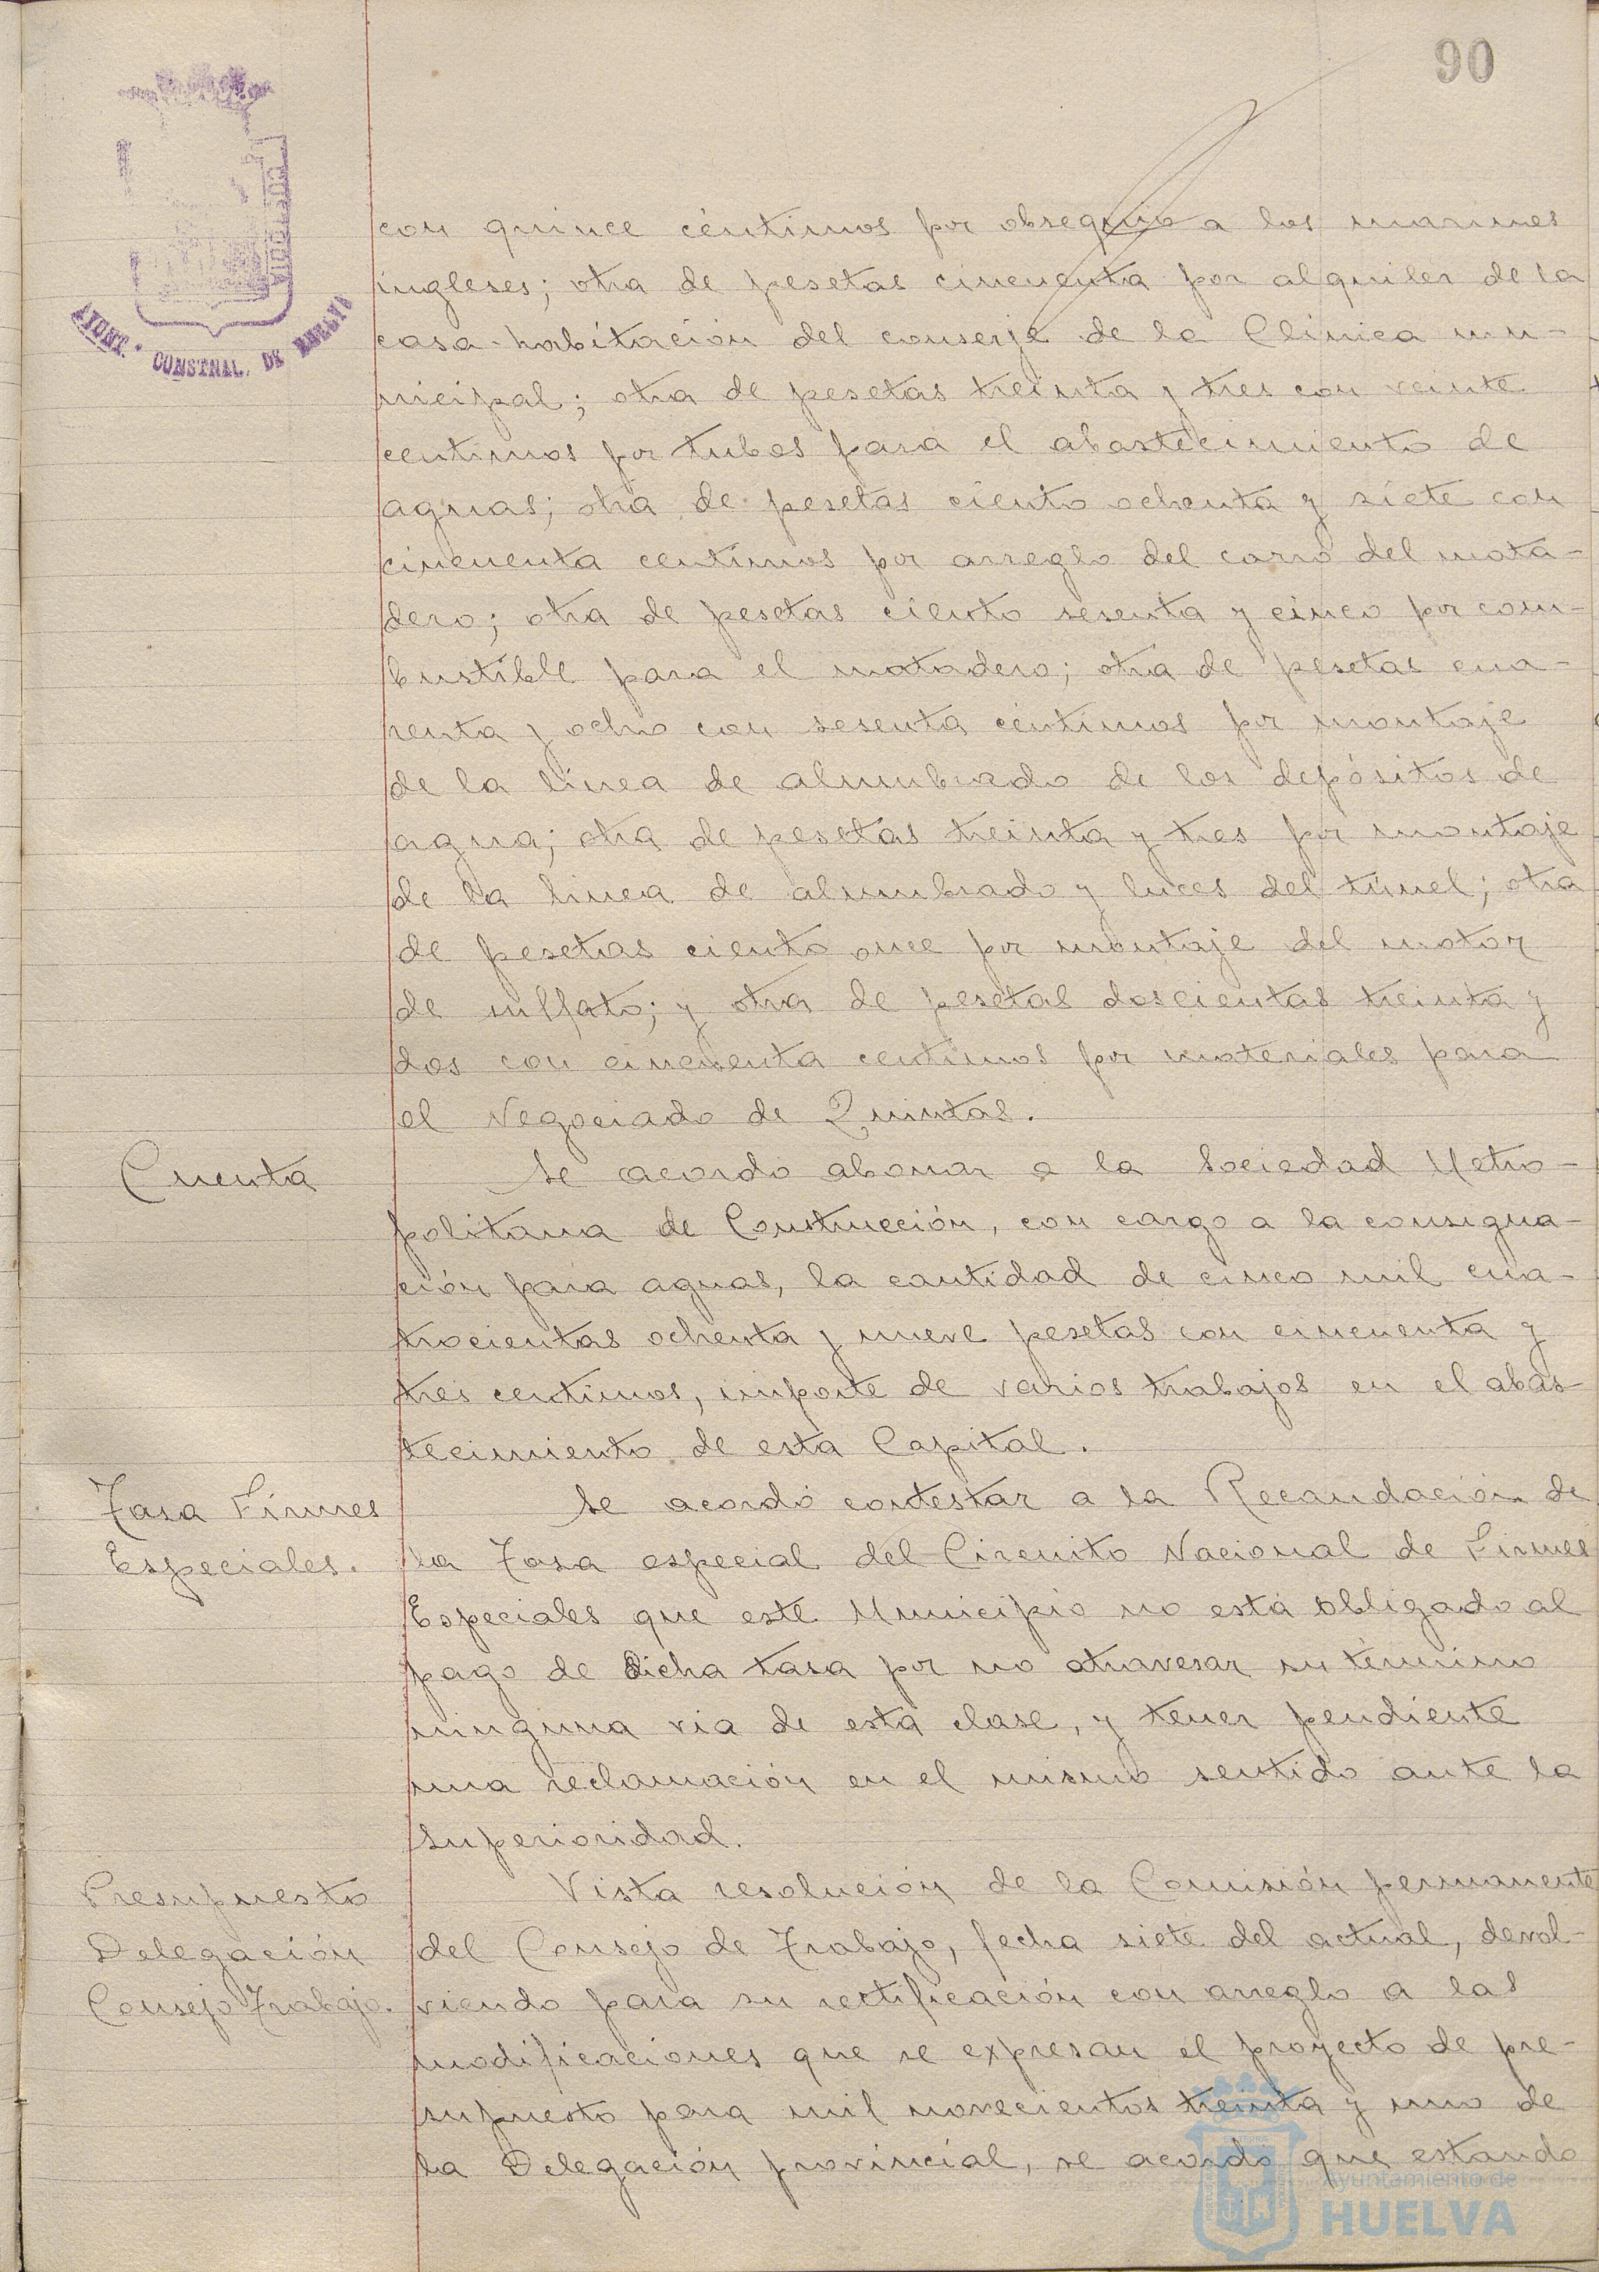 90
AYUNT. CONSTNAL. DE HUELVA
con quince céntimos por obsequio a los marinos
ingleses; otra de pesetas cincuenta por alquiler de la
casa-habitación del conserje de la Clínica mu-
nicipal; otra de pesetas treinta y tres con veinte
centimos por tubos para el abastecimiento de
aguas; otra de pesetas ciento ochenta y siete con
cincuenta centimos por arreglo del carro del mata-
dero; otra de pesetas ciento sesenta y cinco por com-
bustible para el matadero; otra de pesetas cua-
renta y ocho con sesenta céntimos por montaje
de la línea de alumbrado de los depósitos de
agua; otra de pesetas treinta y tres por montaje
de la linea de alumbrado y luces del túnel; otra
de pesetas ciento once por montaje del motor
de sulfato; y otra de pesetas doscientas treinta y
dos con cincuenta centimos por materiales para
el Negociado de Quintas.
Cuenta
Se acordó abonar a la Sociedad Metro-
politana de Construcción, con cargo a la consigna-
ción para aguas, la cantidad de cinco mil cua-
trocientas ochenta y nueve pesetas con cincuenta y
tres centimos, importe de varios trabajos en el abas-
tecimiento de esta Capital.
Tasa Firmes
Especiales.
Se acordó contestar a la Recaudación de
la Tasa especial del Circuito Nacional de Firmes
Especiales que este Municipio no está obligado al
pago de dicha tasa por no atravesar su término
ninguna via de esta clase, y tener pendiente
una reclamación en el mismo sentido ante la
Superioridad.
Presupuesto
Delegación
Consejo Trabajo.
Vista resolución de la Comisión permanente
del Consejo de Trabajo, fecha siete del actual, devol-
viendo para su rectificación con arreglo a las
modificaciones que se expresan el proyecto de pre-
supuesto para mil novecientos treinta y uno de
la Delegación provincial, se acordó que estando
Ayuntamiento de
HUELVA